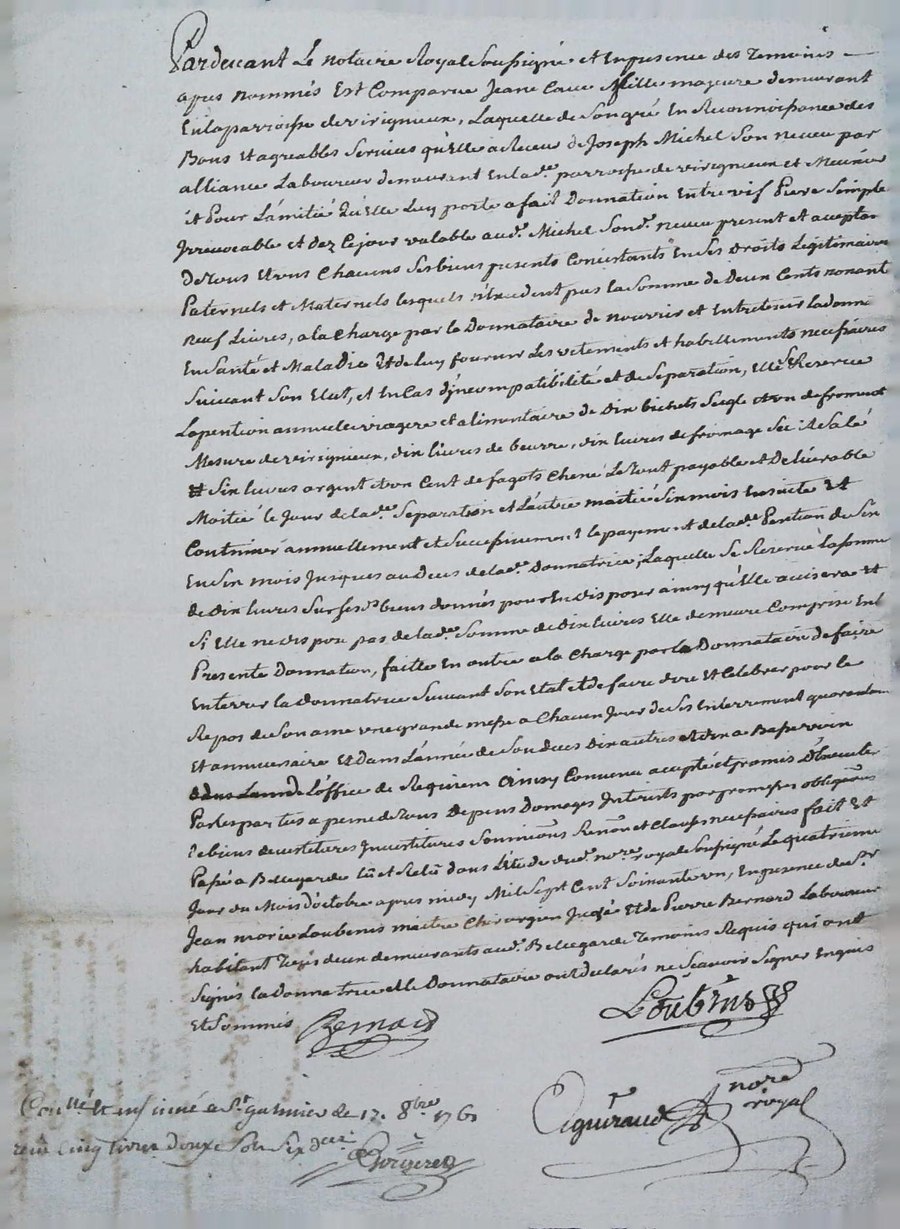 Pardevant Le notaire Royal Soussigné et En presence des Temoins
apres nommés Est Comparue Jeane Cave fille majeure demeurant
En la parroisse de virigneux, Laquelle de Son gré En Reconnoissance des
Bons Et agreables Services qu'Elle a Receu de Joseph Michel Son neveu par
alliance Laboureur demeurant En lade. parroisse de virigneux et
Et Pour L'amitié qu'Elle Luy porte a fait Donnation Entre vif Pure Simple
Irrevocable et dez Ce jour valable aud. Michel Sond. neveu present et acceptan
De Tous Et uns Chacuns Ses biens presents Concistants En Ses Droits Legitimaires
Paternels et Maternels lesquels n'Excedent pas la Somme de Deux Cents nonant
neuf Livres, a la Charge par le Donnataire de nourrir et Entretenir la donne
En Santé et Maladie Et de luy fournir Les vetements et habillements necessaires
Suivant Son Etat, et En Cas d'incompatibilité et de Separation, Elle Se Reserve
La pention annuelle viagere et alimentaire de Dix bichets Seigle et un de froment
Mesure de virigneux, dix livres de beurre, dix livres de fromage Sec et Salé
Six livres argent et un Cent de fagots Chene Le Tout payable et Delivrable
Moitié le Jour de lade. Separation et L'autre moitié Six mois Ensuite Et
Continuer annuellement et Successivement le payement de lade. Pention de Six
En Six mois Jusques au Deces de lade. Donnatrice, Laquelle Se Reservé la Somme
de Dix livres Sur Sesds. biens donnés pour En disposer ainsy qu'Elle avisera Et
Si Elle ne dispose pas de lade. Somme de Dix livres Elle demeure Comprise En l
Presente Donnation, faitte En outre a la Charge par la Donnataire de faire
Enterrer la Donnatrice Suivant Son Etat et de faire dire Et Celebrer pour le
Repos de Son ame une grande messe a Chacun Jour de Ses Enterrement quarantain
Et anniversaire Et Dans L'année de Son deces Dix autres Messes a Basse voix
L'office de Requiem Ainsy Convenu accepté et promis D'Executer
Par les parties a peine de Tous Depens Domages Interets par promesses obligaons
de biens devestitures Investitures Soumissions Renon. et Clauses necessaires fait Et
Passé a Bellegarde lû et Relû dans L'étude dud. nore. royal Soussigné Le quatrieme
Jour du Mois d'octobre apres midy Mil Sept Cent Soixante un, En presence de Sr.
Jean marie Loubenis maitre Chirurgien Juré Et de Pierre Bernard Laboureur
habitant tous deux demeurants aud. Bellegarde Temoins Requis qui ont
Signés la Donnatrice et le Donnataire ont declarés ne Scavoir Signer Enquis
Et Sommés
Bernard
Loubenis
Aguiraud nore royal
Conllé Et insinué a St. galmier le 17. 8bre 1761
reçu cinq livres douze Sou Six den.